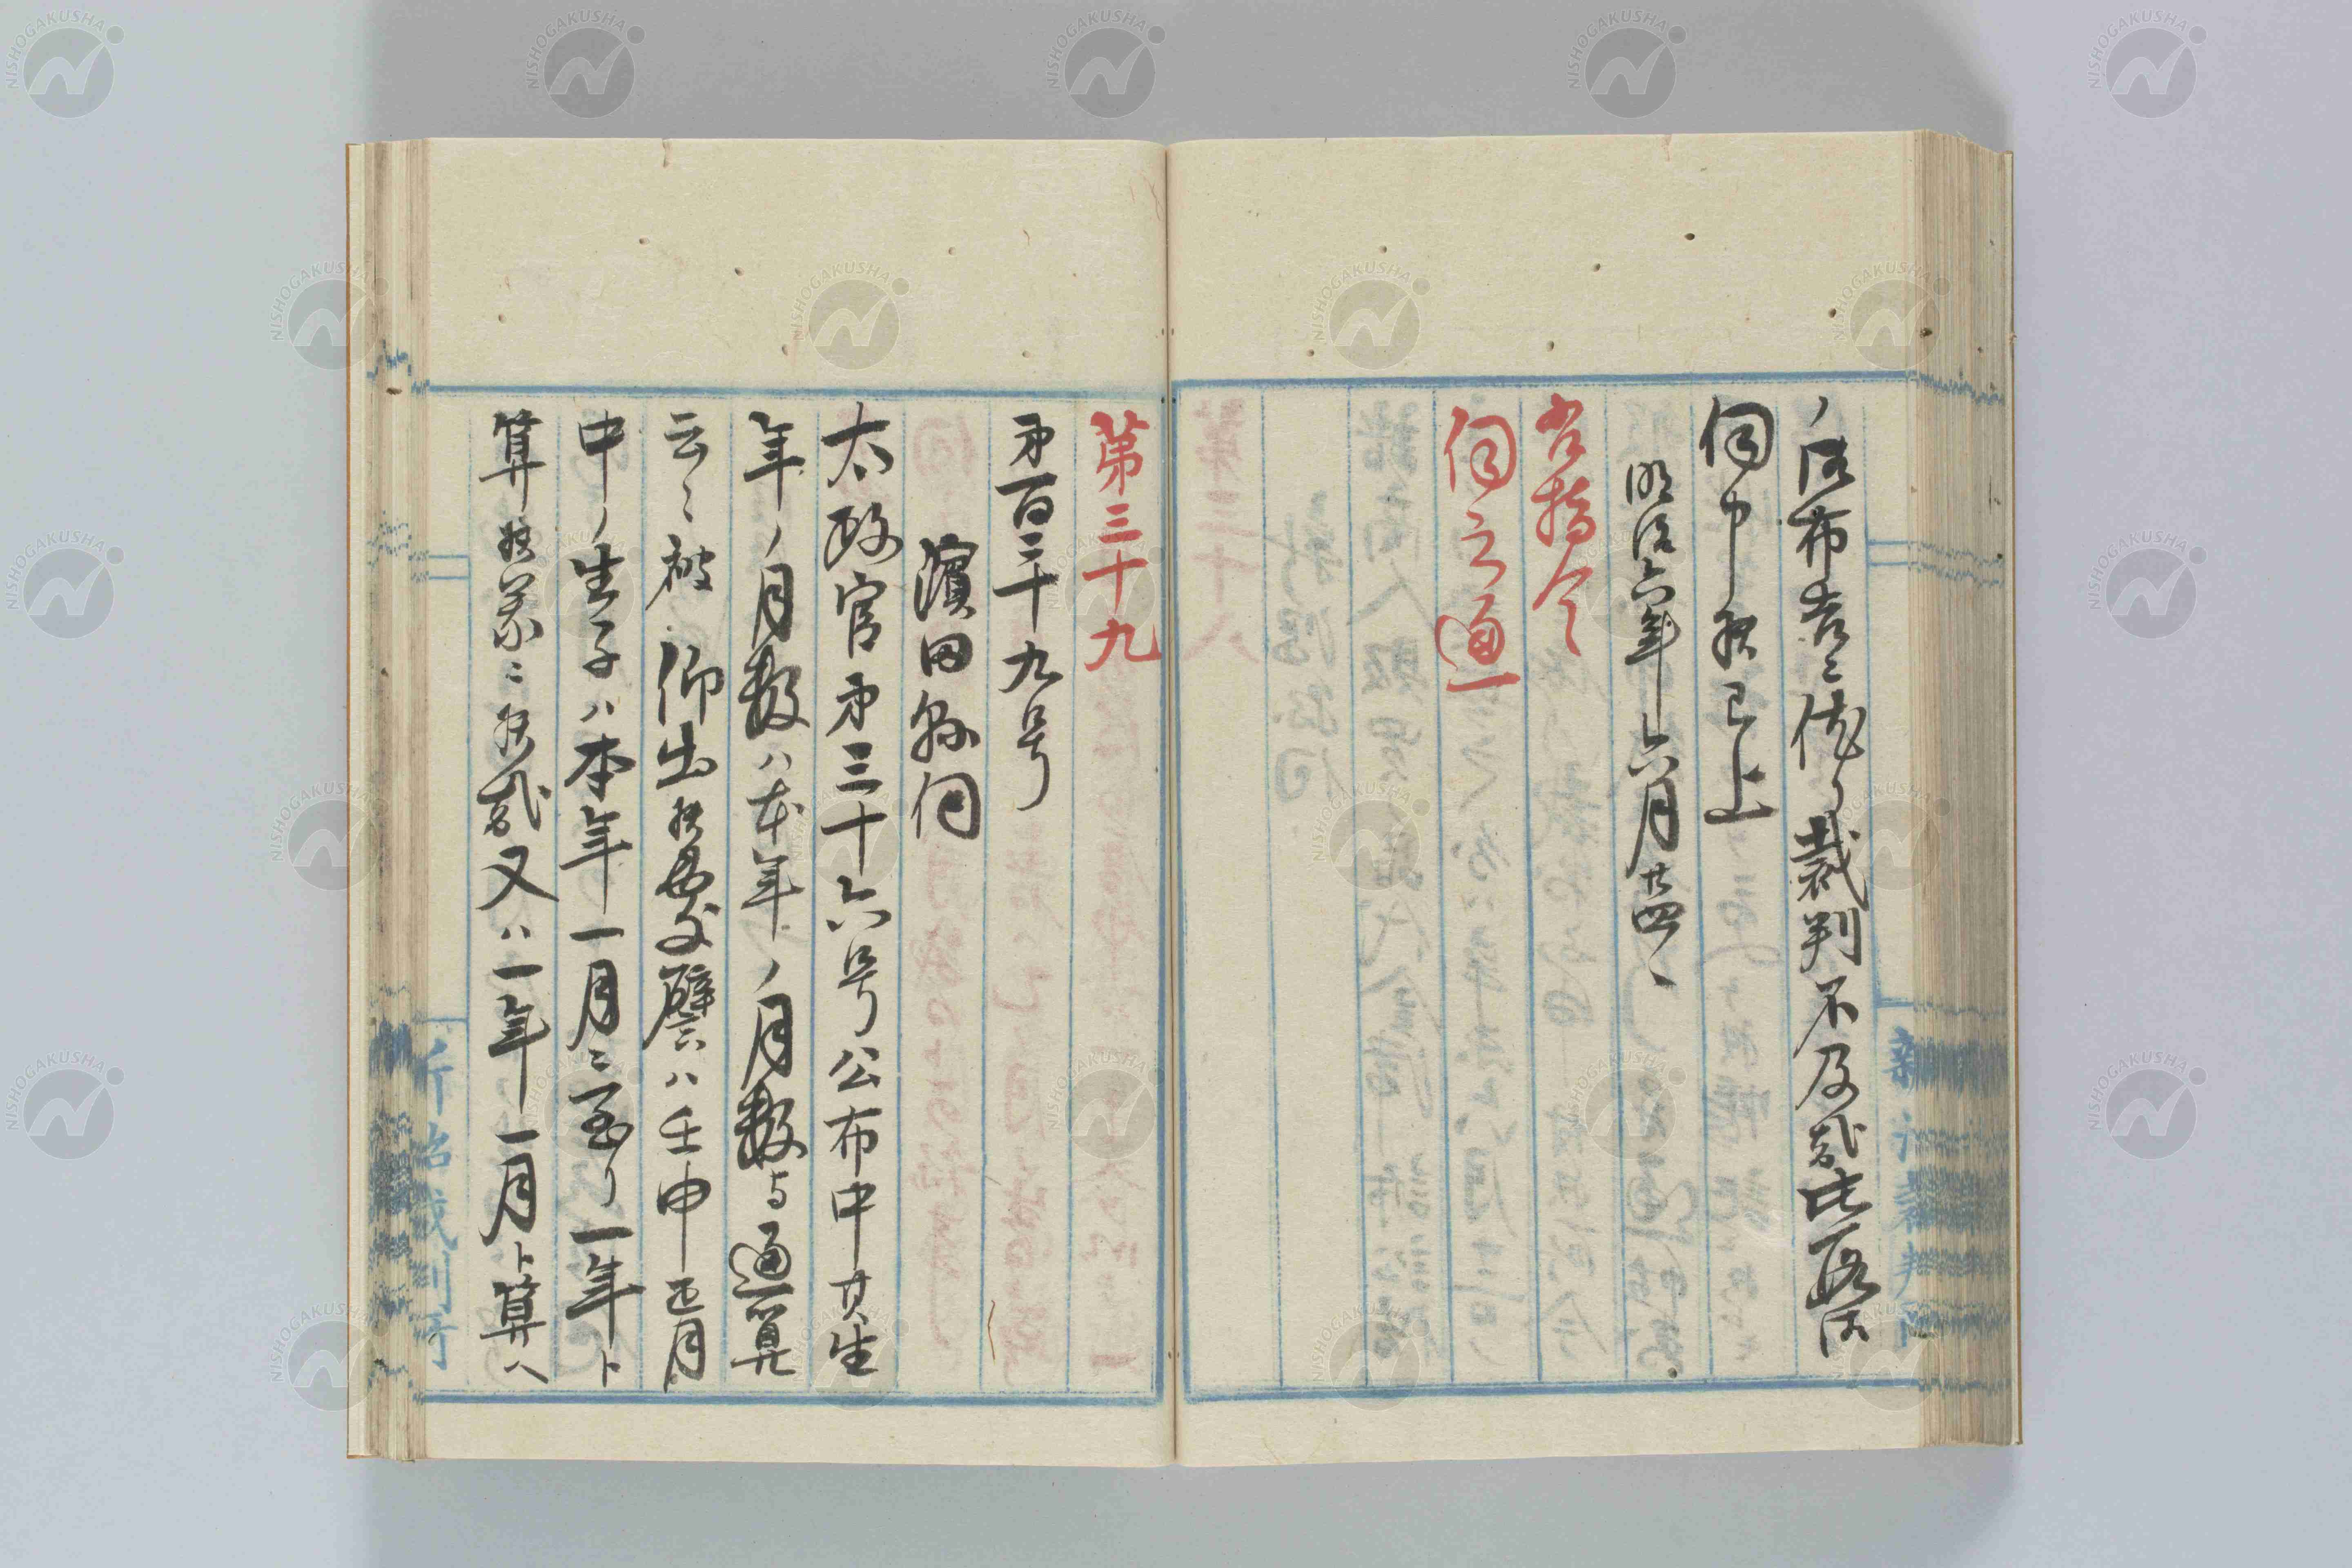 ノ御布告ニ依リ裁判不及哉此段御
伺申候已上
明治六年六月廿四日
省指令
伺之通
第三十九
第百三十九号
濱田縣伺
太政官第三十六号公布中其生
年ノ月数ハ本年ノ月数与通算
云々被仰出候処譬ヘハ壬申正月
中ノ生子ハ本年一月ニ至リ一年ト
算候義ニ候哉又ハ一年一月ト算ヘ
新治裁判所
新治裁判所
NISHOGAKUSHA